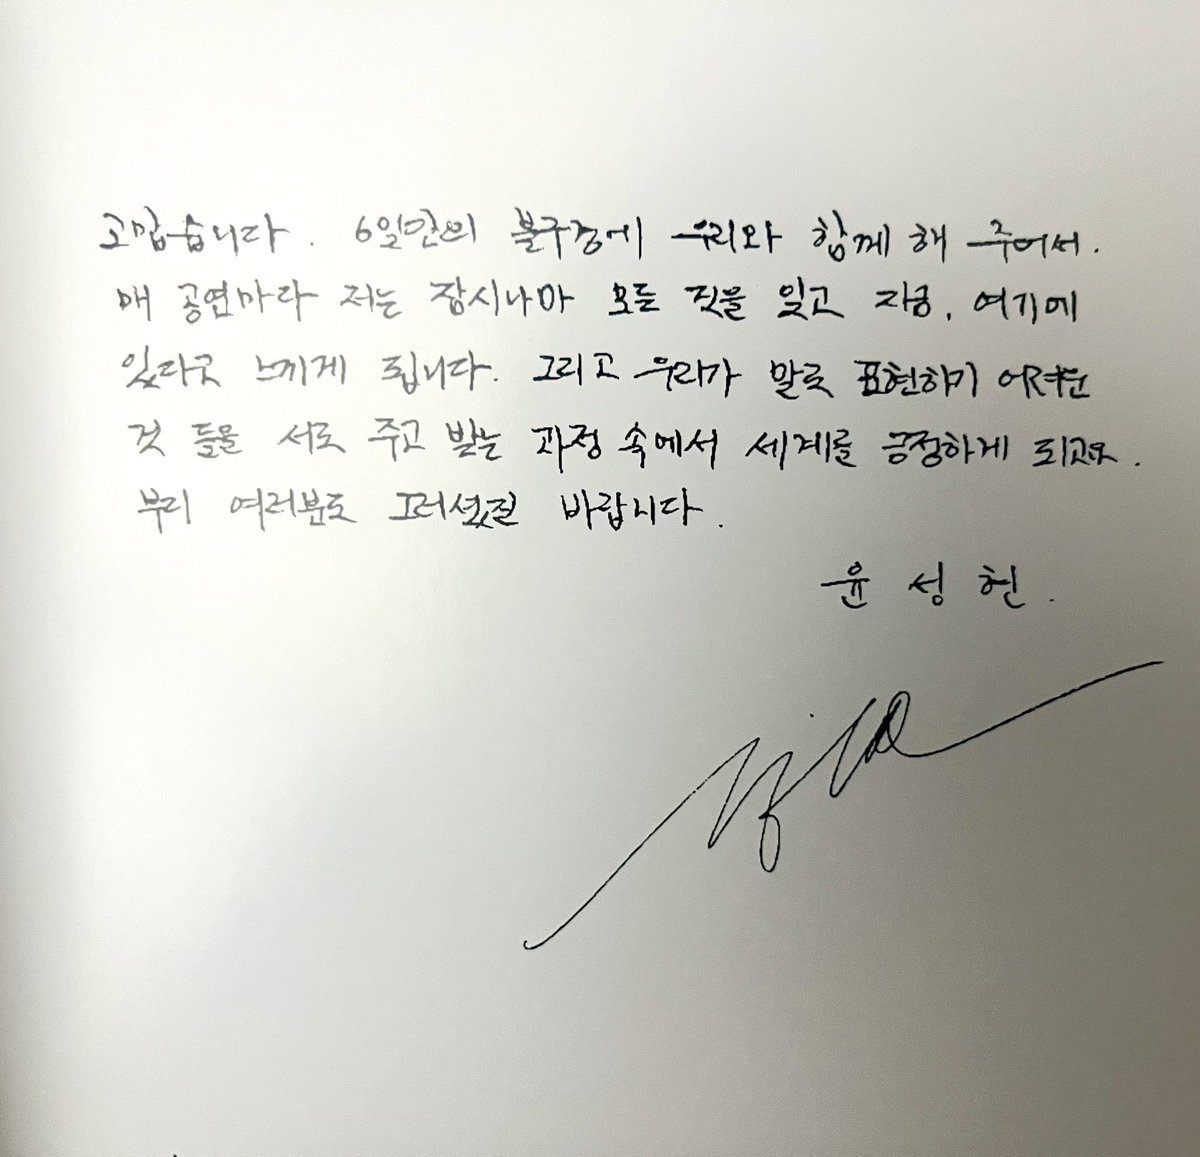 고맙습니다. 6일간의 불구경에 우리와 함께 해 주어서.
매 공연마다 저는 잠시나마 모든 것을 잊고 지금, 여기에
있다고 느끼게 됩니다. 그리고 우리가 말로 표현하기 어려운
것 들을 서로 주고 받는 과정 속에서 세계를 긍정하게 되고요.
부디 여러분도 그러셨길 바랍니다.
윤 성 현.